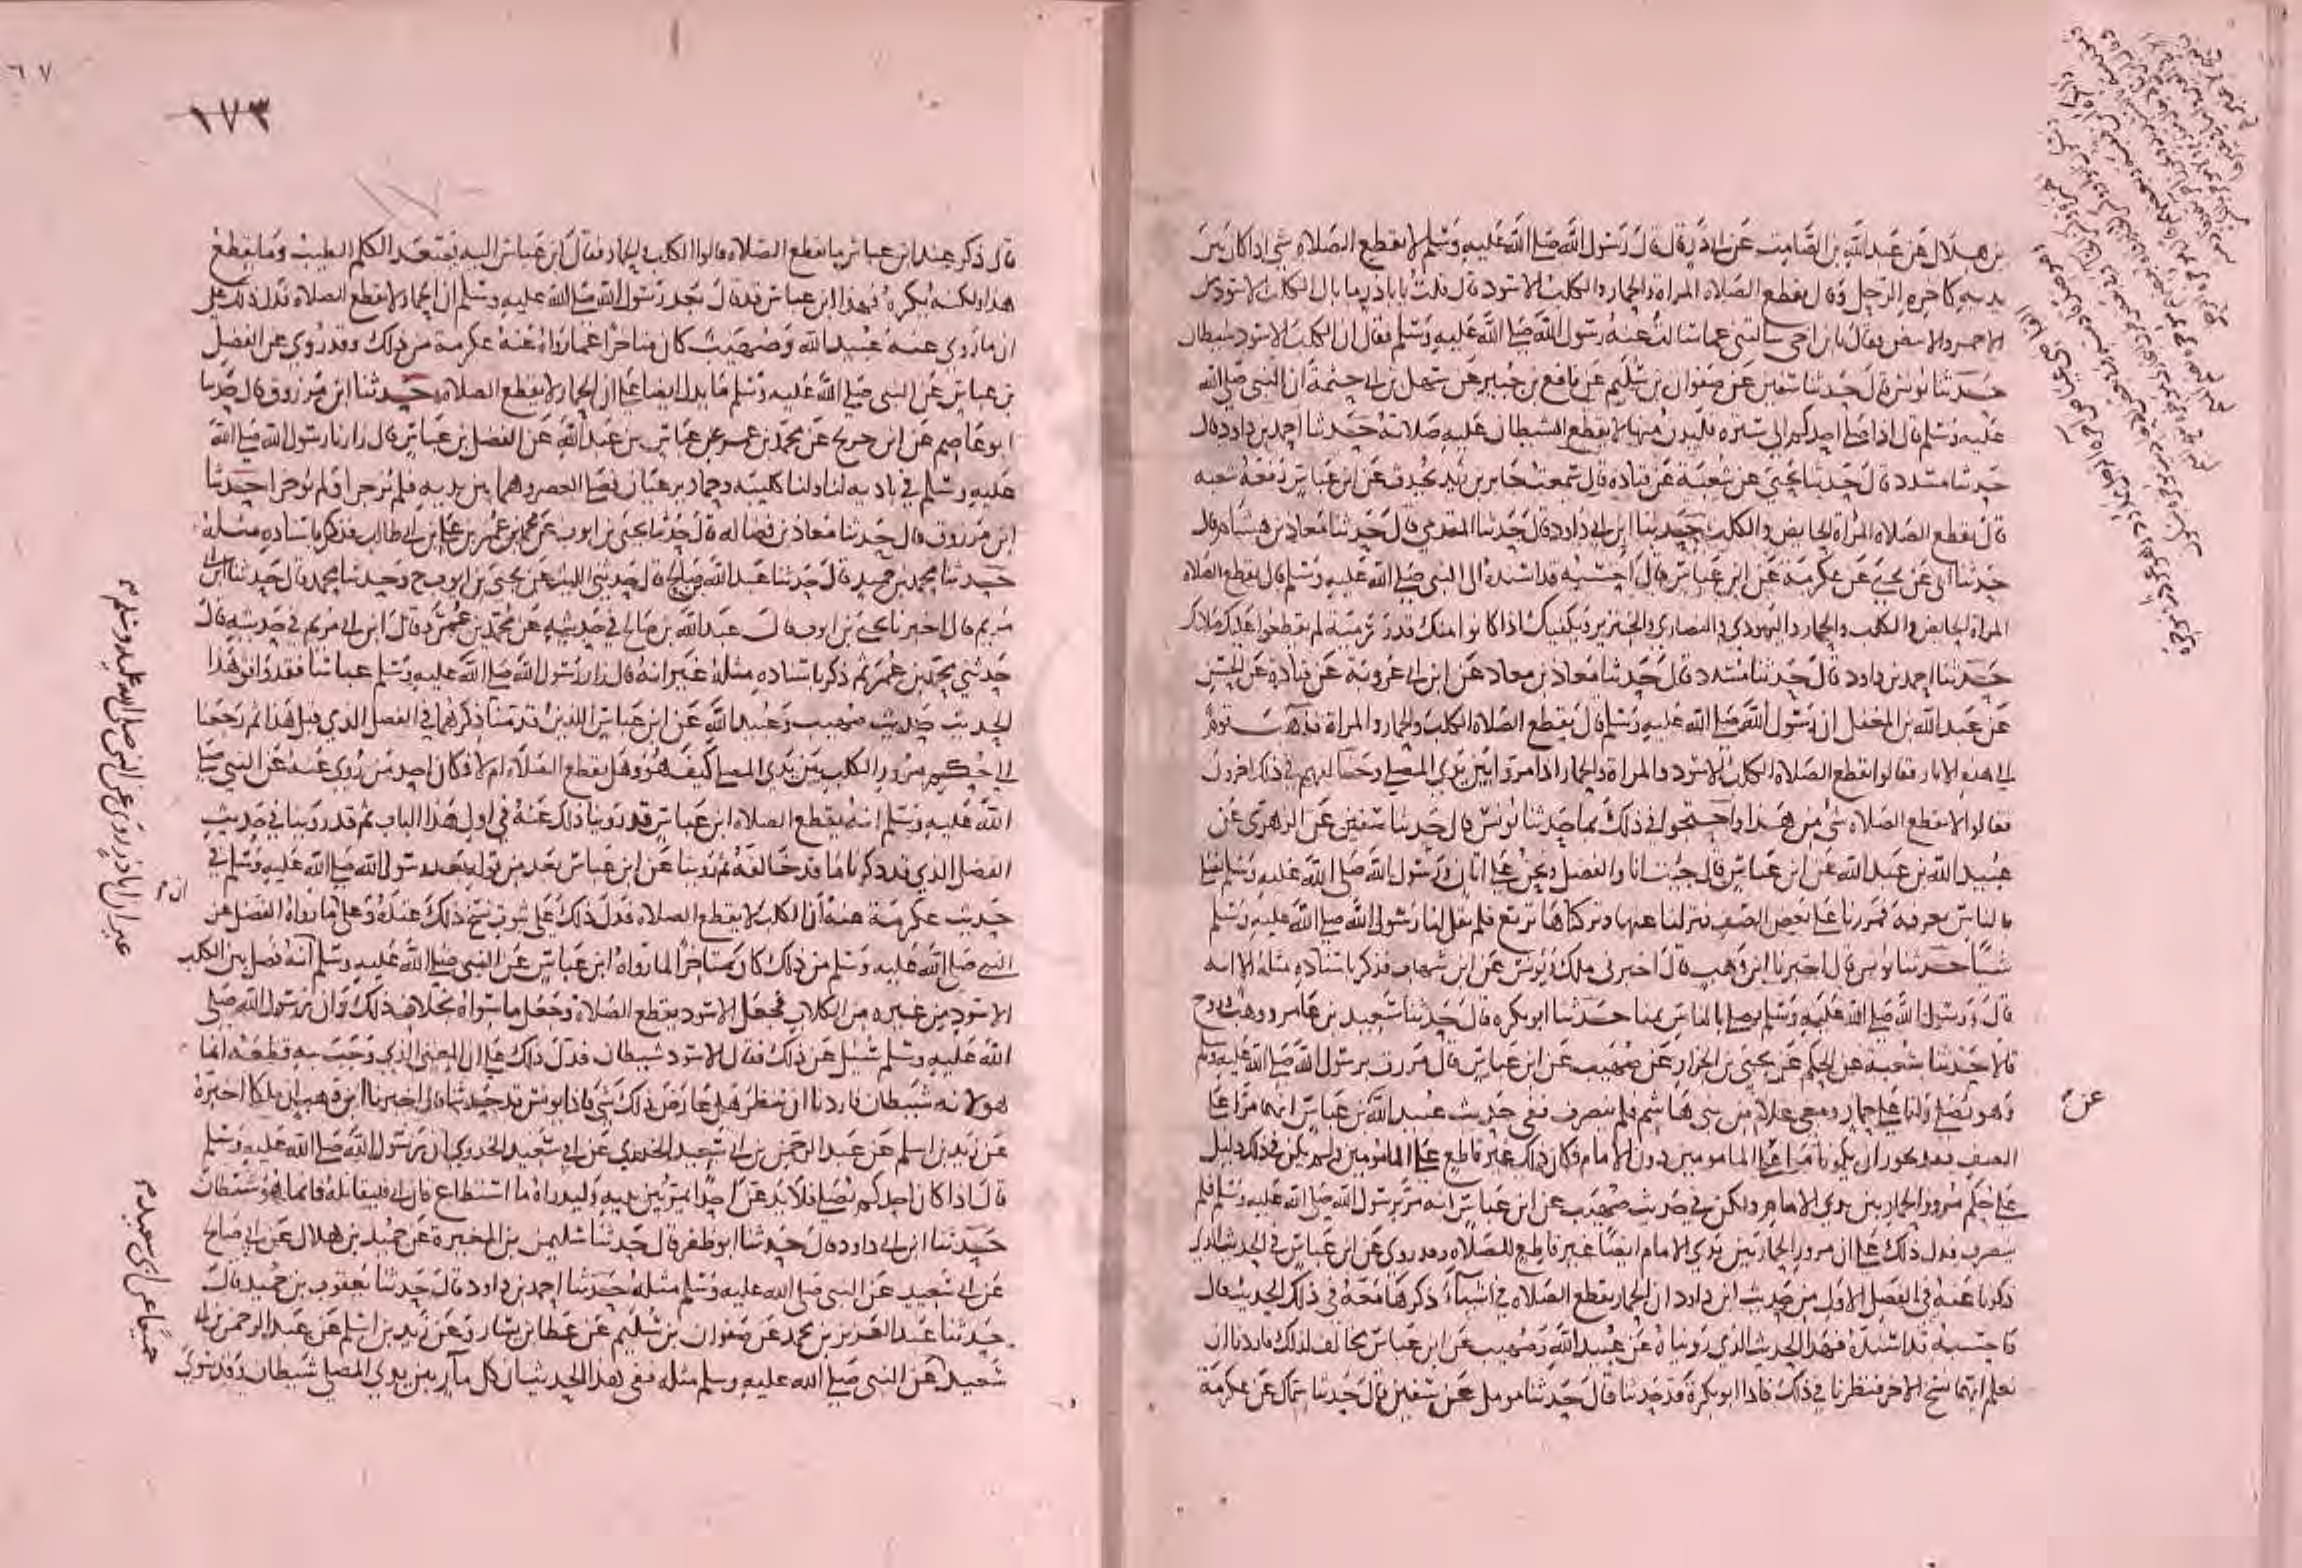 بن هلال عن عبد الله بن الصامت عن ابي ذر قال قال رسول الله صلى الله عليه وسلم لا يقطع الصلاة شي اذا كان بين
يديه كاخرة الرحل وقال يقطع الصلاة المراة والحمار والكلب الاسود قال قلت يا باذر ما بال الكلب الاسود من
الاحمر والابيض فقال يا بن اخي سالتني عما سالت عنه رسول الله صلى الله عليه وسلم فقال ان الكلب الاسود شيطان
حدثنا يونس قال حدثنا سفين عن صفوان بن سليم عن نافع بن جبير عن سهل بن ابي حثمة ان النبي صلى الله
عليه وسلم قال اذا صلى احدكم الى سترة فليدن منها لا يقطع الشيطان عليه صلاته حدثنا احمد بن داود قال
حدثنا مسدد قال حدثنا يحيى عن شعبة عن قتادة قال سمعت جابر بن زيد يحدث عن ابن عباس رفعه شعبة
قال يقطع الصلاة المراة الحايض والكلب حدثنا ابن ابي داود قال حدثنا المقدمي قال حدثنا معاذ بن هشام قال
حدثنا ابي عن يحيى عن عكرمة عن ابن عباس قال احسبه قد اسنده الى النبي صلى الله عليه وسلم قال يقطع الصلاة
المراة الحايض والكلب والحمار واليهودي والنصراني والخنزير ويكفيك اذا كانوا منك قدر رمية لم يقطعوا عليك صلاتك
حدثنا احمد بن داود قال حدثنا مسدد قال حدثنا معاذ بن معاذ عن ابن ابي عروبة عن قتادة عن الحسن
عن عبد الله بن المغفل ان رسول الله صلى الله عليه وسلم قال يقطع الصلاة الكلب والحمار والمراة فذهب قوم
الى هذه الاثار فقالوا يقطع الصلاة الكلب الاسود والمراة والحمار اذا مروا بين يدي المصلي وخالفهم في ذلك اخرون
فقالوا لا يقطع الصلاة شي من هذا واحتجوا في ذلك بما حدثنا يونس قال حدثنا سفين عن الزهري عن
عبيد الله بن عبد الله عن ابن عباس قال جيت انا والفضل ونحن على اتان ورسول الله صلى الله عليه وسلم يصلي
بالناس بعرفة فمررنا على بعض الصف فنزلنا عنها وتركناها ترتع فلم يقل لنا رسول الله صلى الله عليه وسلم
شيا حدثنا يونس قال اخبرنا ابن وهب قال اخبرني ملك ويونس عن ابن شهاب فذكر باسناده مثله الا انه
قال ورسول الله صلى الله عليه وسلم يصلي بالناس بمنا حدثنا ابو بكرة قال حدثنا سعيد بن عامر ووهب وروح
قالا حدثنا شعبة عن الحكم عن يحيى بن الجزار عن صهيب عن ابن عباس قال مررت برسول الله صلى الله عليه وسلم
وهو يصلي وانا على حمار ومعي غلام من بني هاشم فلم ينصرف ففي حديث عبيد الله عن ابن عباس انهما مرا على
عن
الصف فقد يجوز ان يكونا مرا على المامومين دون الامام فكان ذلك غير قاطع على المامومين ولم يكن في ذلك دليل
على حكم مرور الحمار بين يدي الامام ولكن في حديث صهيب عن ابن عباس انه مر برسول الله صلى الله عليه وسلم فلم
ينصرف فدل ذلك على ان مرور الحمار بين يدي الامام ايضا غير قاطع للصلاة وقد روي عن ابن عباس في الحديث الذي
ذكرنا عنه في الفصل الاول من حديث ابن داود ان الحمار يقطع الصلاة في اشياء ذكرها معه في ذلك الحديث قال
فاحسبه قد اسنده فهذا الحديث الذي رويناه عن عبيد الله وصهيب عن ابن عباس يخالف لذلك فاردنا ان
نعلم ايهما نسخ الاخر فنظرنا في ذلك فاذا ابو بكرة قد حدثنا قال حدثنا مومل عن سفين قال حدثنا سماك عن عكرمة
٦٧
١٧٣
قال ذكر عند ابن عباس ما يقطع الصلاة قالوا الكلب والحمار فقال ابن عباس اليه يصعد الكلم الطيب وما يقطع
هذا ولكنه يكره فهذا ابن عباس قد قال بعد رسول الله صلى الله عليه وسلم ان الحمار لا يقطع الصلاة فدل ذلك على
ان ما روي عنه عبيد الله وصهيب كان متاخرا عما رواه عنه عكرمة من ذلك وقد روي عن الفضل
بن عباس عن النبي صلى الله عليه وسلم ما يدل ايضا على ان الحمار لا يقطع الصلاة حدثنا ابن مرزوق قال حدثنا
ابو عاصم عن ابن جريج عن محمد بن عمر عن عباس بن عبد الله عن الفضل بن عباس قال زارنا رسول الله صلى الله
عليه وسلم في بادية لنا ولنا كليبة وحمار يرعيان فصلى العصر وهما بين يديه فلم يزجرا ولم يوخرا حدثنا
ابن مرزوق قال حدثنا معاذ بن فضاله قال حدثنا يحيى بن ايوب عن محمد بن عمر بن علي بن ابي طالب فذكر باسناده مثله
حدثنا محمد بن حميد قال حدثنا عبد الله بن صالح قال حدثني الليث عن يحيى بن ايوب ح وحدثنا محمد قال حدثنا ابن ابي
مريم قال اخبرنا يحيى بن ايوب قال عبد الله بن صالح في حديثه عن محمد بن عمر وقال ابن ابي مريم في حديثه قال
حدثني محمد بن عمر ثم ذكر باسناده مثله غير انه قال زار رسول الله صلى الله عليه وسلم عباسا فقد وافق هذا
الحديث حديث صهيب وعبيد الله عن ابن عباس اللذين قدمنا ذكرهما في الفصل الذي قبل هذا ثم رجعنا
الى حكم مرور الكلب بين يدي المصلي كيف هو وهل يقطع الصلاة ام لا فكان احد من روي عنه عن النبي صلى
الله عليه وسلم انه يقطع الصلاة ابن عباس قد روينا ذلك عنه في اول هذا الباب ثم قد روينا في حديث
الفضل الذي قد ذكرنا ما قد خالفه ثم روينا عن ابن عباس بعد من قوله بعد رسول الله صلى الله عليه وسلم في
حديث عكرمة عنه ان الكلب لا يقطع الصلاة فدل ذلك على ثبوت نسخ ذلك عنده وعلى ما رواه الفضل عن
النبي صلى الله عليه وسلم من ذلك كان متاخرا لما رواه ابن عباس عن النبي صلى الله عليه وسلم انه فصل بين الكلب
الاسود من غيره من الكلاب فجعل الاسود يقطع الصلاة وجعل ما سواه بخلاف ذلك وان رسول الله صلى
الله عليه وسلم سئل عن ذلك فقال الاسود شيطان فدل ذلك على ان المعنى الذي وجب به قطعه انما
هو لانه شيطان فاردنا ان ننظر هل عارض ذلك شي فاذا يونس قد حدثنا قال اخبرنا ابن وهب ان ملكا اخبره
عن زيد بن اسلم عن عبد الرحمن بن ابي سعيد الخدري عن ابي سعيد الخدري ان رسول الله صلى الله عليه وسلم
قال اذا كان احدكم يصلي فلا يدعن احدا يمر بين يديه وليدراه ما استطاع فان ابى فليقاتله فانما هو شيطان
حدثنا ابن ابي داود قال حدثنا ابو ظفر قال حدثنا سليمن بن المغيرة عن حميد بن هلال عن ابي صالح
عن ابي سعيد عن النبي صلى الله عليه وسلم مثله حدثنا احمد بن داود قال حدثنا يعقوب بن حميد قال
حدثنا عبد العزيز بن محمد عن صفوان بن سليم عن عطا بن يسار وعن زيد بن اسلم عن عبد الرحمن بن ابي
سعيد عن النبي صلى الله عليه وسلم مثله ففي هذا الحديث ان كل مار بين يدي المصلي شيطان وقد سوي
غير ان اباذر روى عن النبي صلى الله عليه وسلم
ان
جميعا عن ابي سعيد